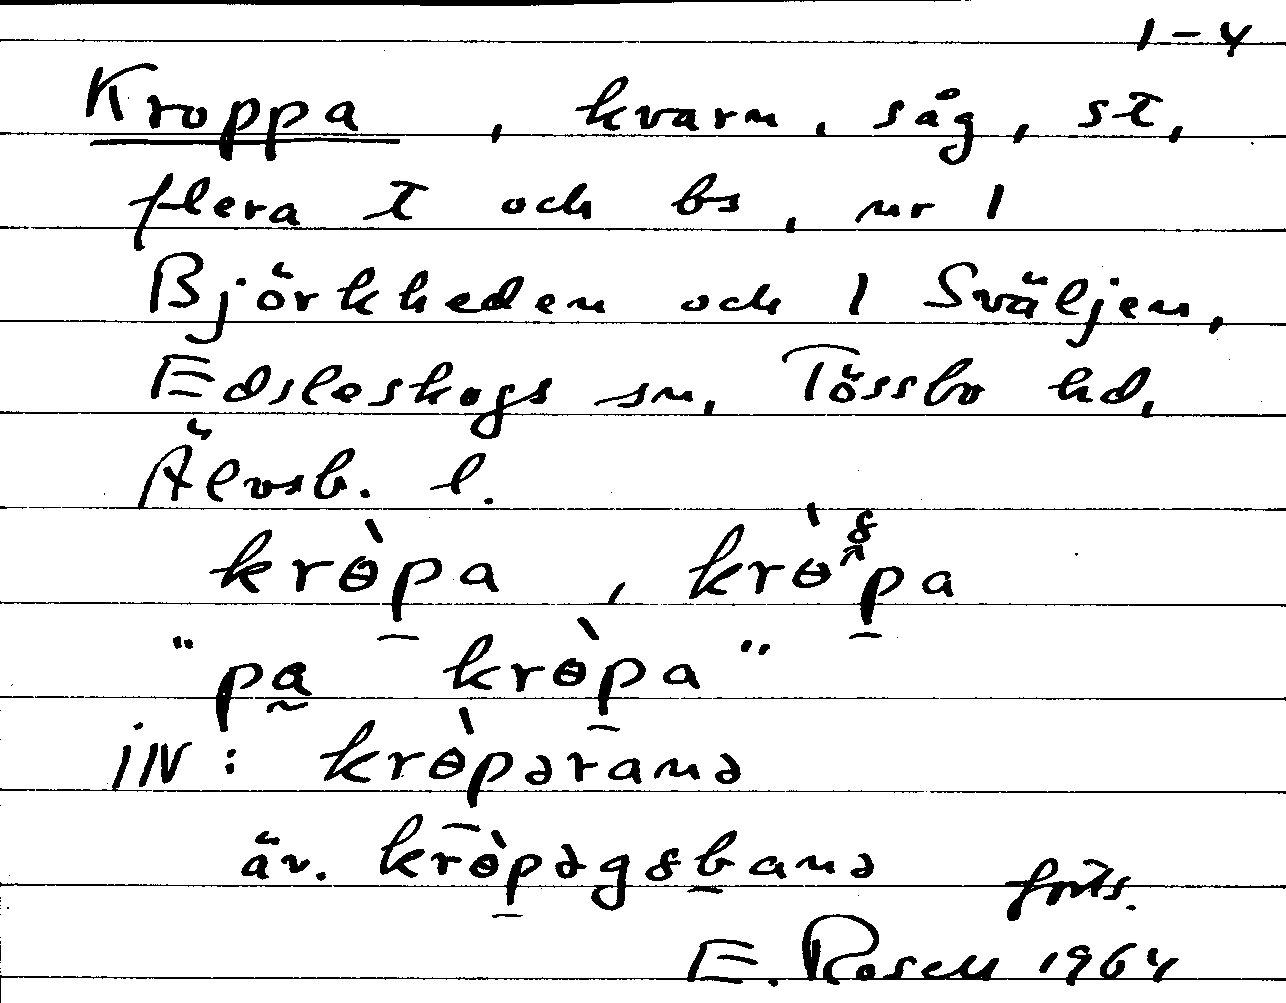 1-4
Kroppa, kvarn, såg, st,
flera t och bs, nr 1
Björkheden och 1 Sväljen,
Edsleskogs sn, Tössbo hd,
Älvsb. l.
krɵ̀pa, krɵ̀ᵟpa
"pa krɵ̀pa"
inv: krɵ̀pəranə
äv. krɵ̀pəgsbanə forts.
E. Rosell 1964